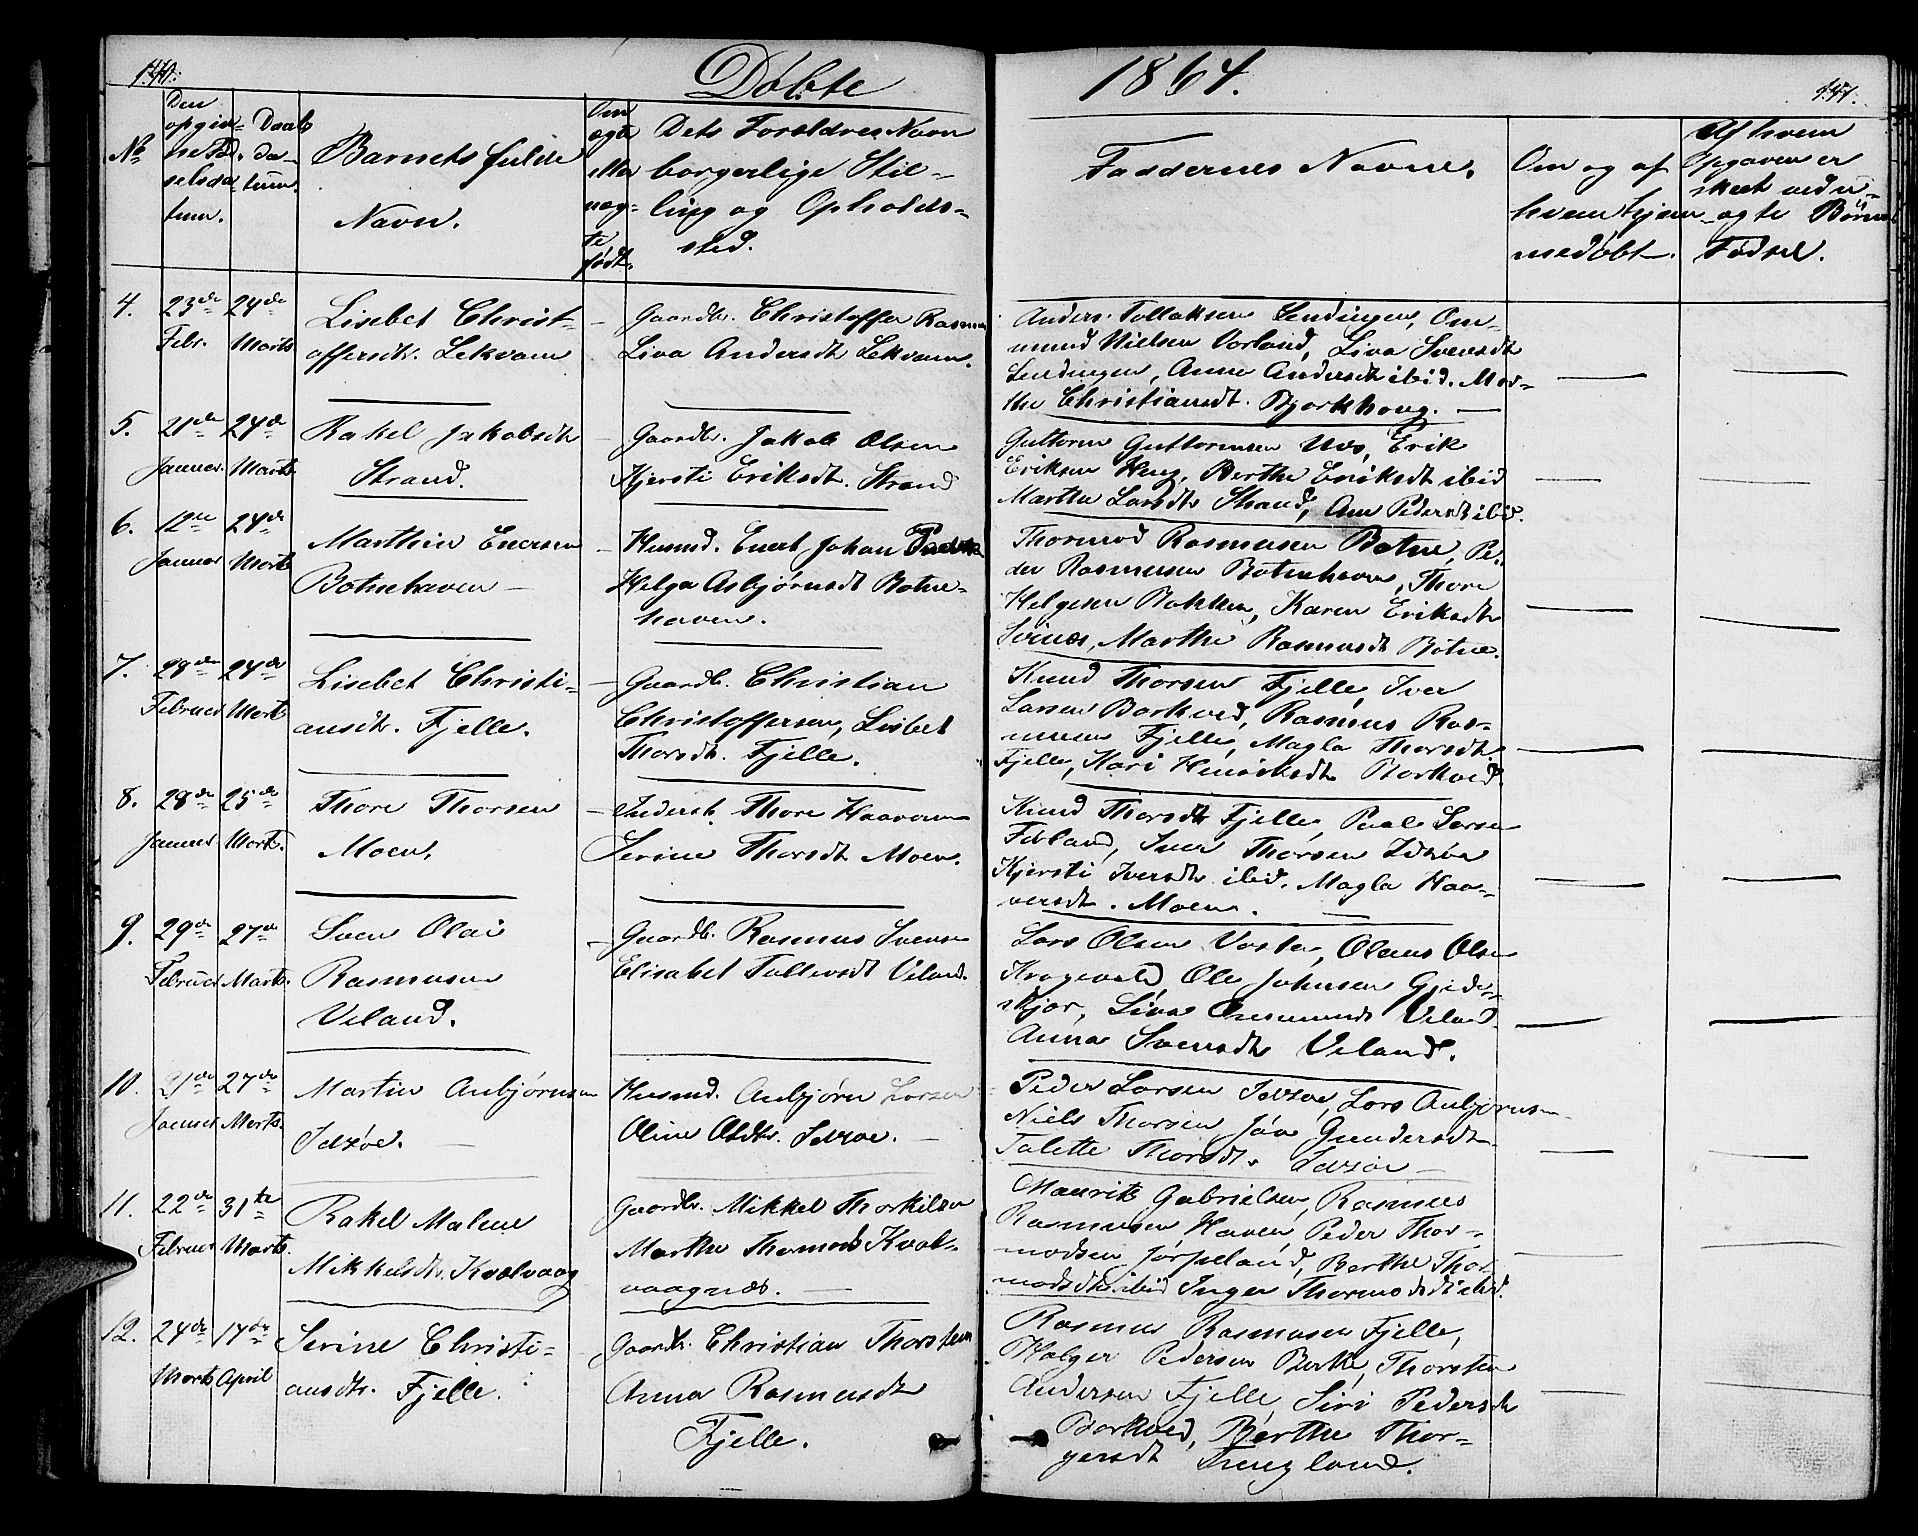 140.
Døbte
1864.
141.
No
Den
opgiv-
ne Fød-
selsda-
tum.
Daabs
da-
tum.
Barnets fulde
Navn.
Om
ægte
eller
uæg-
te
født.
Dets Forældres Navn
borgerlige Stil-
ling og Opholds-
sted.
Faddernes Navne.
Om og af
hvem hjem-
medøbt.
Af hvem
Opgaven er
skeet ved u-
ægte Børns
Fødsel.
4.
23de
Febr.
24de
Marts
Lisebet Christ-
offersdtr. Lekvam
Gaardbr. Christoffer Rasmus
Liva Andersdtr Lekvam.
Anders Tollaksen Lindingen, Om-
mund Nielsen Vorland, Liva Svensdtr
Lindingen, Anna Andersdtr ibid. Mar-
the Christiansdt. Bjorkhoug.
5.
21de
Januar.
24de
Marts
Rakel Jakobsdtr
Strand.
Gaardbr. Jakob Olsen
Kjersti Eriksdt. Strand
Guttorm Guttormsen Nes, Erik
Eriksen Heng, Berthe Eriksdt ibid
Marthe Larsdtr Strand, Ane Pedersdt ibid.
6.
12te
Januar
24de
Marts
Marthin Enersen
Botnehaven
Husmd. Enert Johan
Helga Asbjørnsdt Botne-
haven.
Thormod Rasmussen Botne, Pe-
der Rasmussen Botnehaven, Thore
Helgesen Bakken, Karen Eriksdtr
Svines, Marthe Rasmusdt Botne.
7.
28de
Februar
24de
Marts
Lisebet Christi-
ansdtr. Fjelle.
Gaardbr. Christian
Christoffersen, Lisbet
Thorsdt. Fjelle.
Knud Thorsen Fjelle, Iver
Larsen Barkved, Rasmus Ras-
mussen Fjelle, Magla Thorsdtr
Fjelle, Kari Henriksdtr Barkved.
8.
28de
Januar
25de
Marts.
Thore Thorsen
Moen.
Inderst. Thore Haavorsen
Serine Thorsdt Moen.
Knud Thorsdtr Fjelle, Paul Larsen
Førland, Iver Thorsen Idsøe
Kjersti Iversdtr ibid. Magla Haa-
versdt. Moen.
9.
29de
Februar
27de
Marts.
Sven Olai
Rasmussen
Veland.
Gaardbr. Rasmus Svensen
Elisabet Tollevsdt Veland.
Lars Olsen Vaste, Olaus Olsen
Kragevold, Ole Johnsen Gjeder-
skjær, Liva Omunds Veland
Anna Svensdtr Veland.
10.
21de
Januar
27de
Marts.
Martin Anbjørnsen
Idsøe.
Husmd. Anbjørn Larsen
Oline Olsdtr. Idsøe.
Peder Larsen Idsøe, Lars Anbjørnsen
Niels Thorsen Jøa Gundersdtr
Talette Thorsdtr Idsøe
11.
22de
Februar
31te
Marts.
Rakel Malene
Mikkelsdtr. Kvalvaag
Gaardbr. Mikkel Thorkilsen
Marthe Thormods Kval-
vaagnæs.
Maurits Gabrielsen, Rasmus
Rasmussen Haven Peder Thor-
modsen Jørpeland, Berthe Thor-
modsdtr ibid Inger Thormodsdt ibid.
12.
24de
Marts
17de
April
Serine Christi-
ansdtr. Fjelle.
Gaardbr. Christian Thorsten
Anna Rasmusdtr
Fjelle.
Rasmus Rasmussen Fjelle,
Holger Pedersen Berke, Thorsten
Andersen Fjelle, Siri Pedersdtr
Barkved, Berthe Thor-
gersdt Tungland.